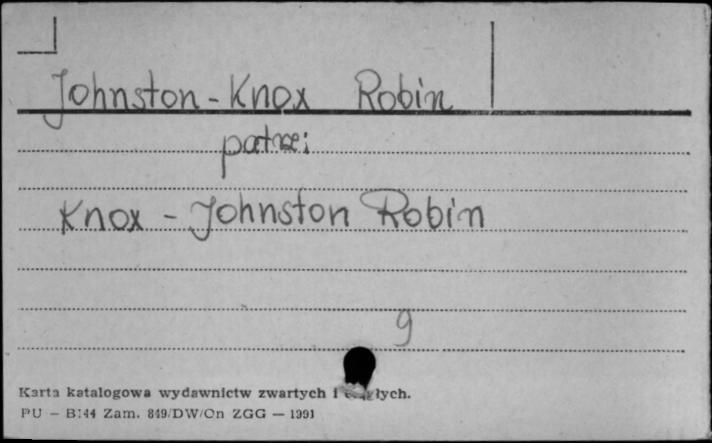 Johnston-Knox Robin
patrz:
Knox - Johnston Robin
9
Karta katalogowa wydawnictw zwartych i ciągłych.
PU - B144 Zam. 849/DW/On ZGG - 1991